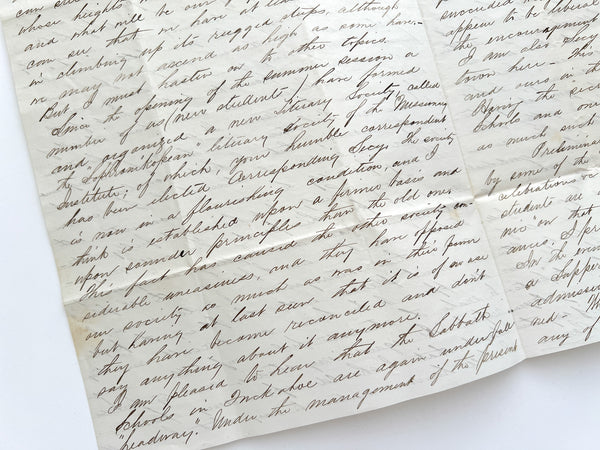 whose heights
and what will be our
can see, that we have at least
in climbing up its rugged steps, although
we may not ascend as high as some have.—
But I must hasten on to other topics.
Since the opening of the summer session a
number of us (new students) have formed
and organized a new Literary Society called
the "Sopronikopean" literary society of the Missionary
Institute; of which, your humble correspondent
has been elected Corresponding Secy. The society
is now in a flourishing condition, and I
think is established upon a firmer basis and
upon sounder principles than the old one.
This fact has caused the other society con-
siderable uneasiness, and they have opposed
our society so much as was in their power
but having at last seen that it is of no use
they have become reconciled and don't
say anything about it anymore.
I am pleased to hear that the Sabbath
Schools in Tuckahoe are again under full
"headway." Under the management of the present
appear to be liberal
the encouragement
I am also Secy
town here— This
and ours in the
During the sec
Schools and one
as much such
Preliminar
by some of the
celebrations &c
students are
on that
I pr
In the even
a Supper
admission
ned— W
any of